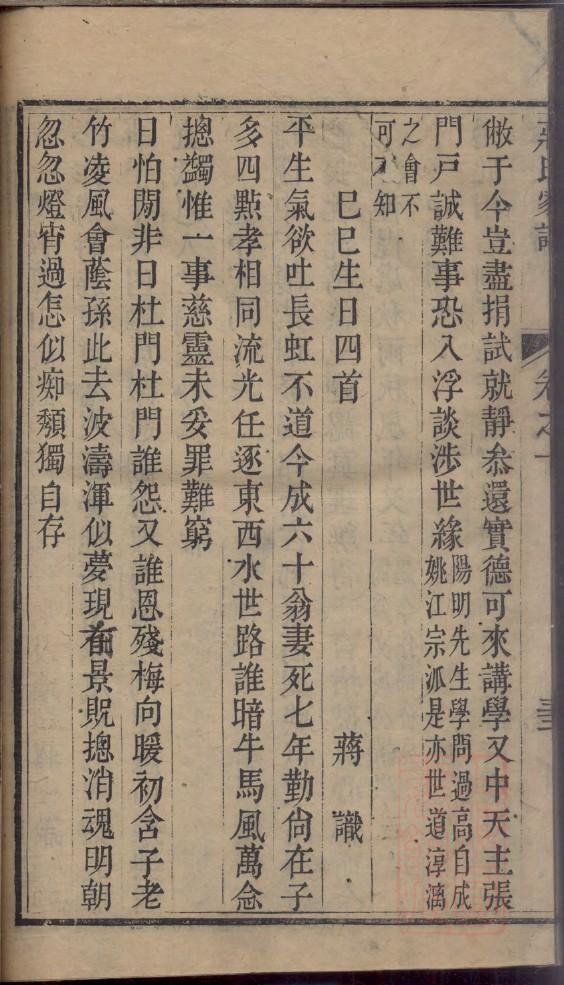 蔣氏家訓
卷之一
敝于今豈盡捐試就靜叅還實德可來講學又中天主張
門戸誠難事恐入浮談涉世緣陽明先生學問過高自成姚江宗派是亦世道淳漓
之會不可不知
巳巳生日四首
蔣識
平生氣欲吐長虹不道今成六十翁妻死七年勤尙在子
多四㸃孝相同流光任逐東西水世路誰暗牛馬風萬念
摠蠲惟一事慈靈未妥罪難窮
日怕閒非日杜門杜門誰怨又誰恩殘梅向暖初含子老
竹凌風會蔭孫此去波濤渾似夢現看景貺摠消魂明朝
忽忽燈宵過怎似痴頹獨自存